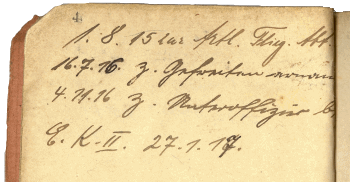 1. 8. 15 zur Artl. Flieg. Abt
16.7.16. z. Gefreiten ernan
4.11.16 z. Unteroffizier be
E. K. II. 27.1.17.